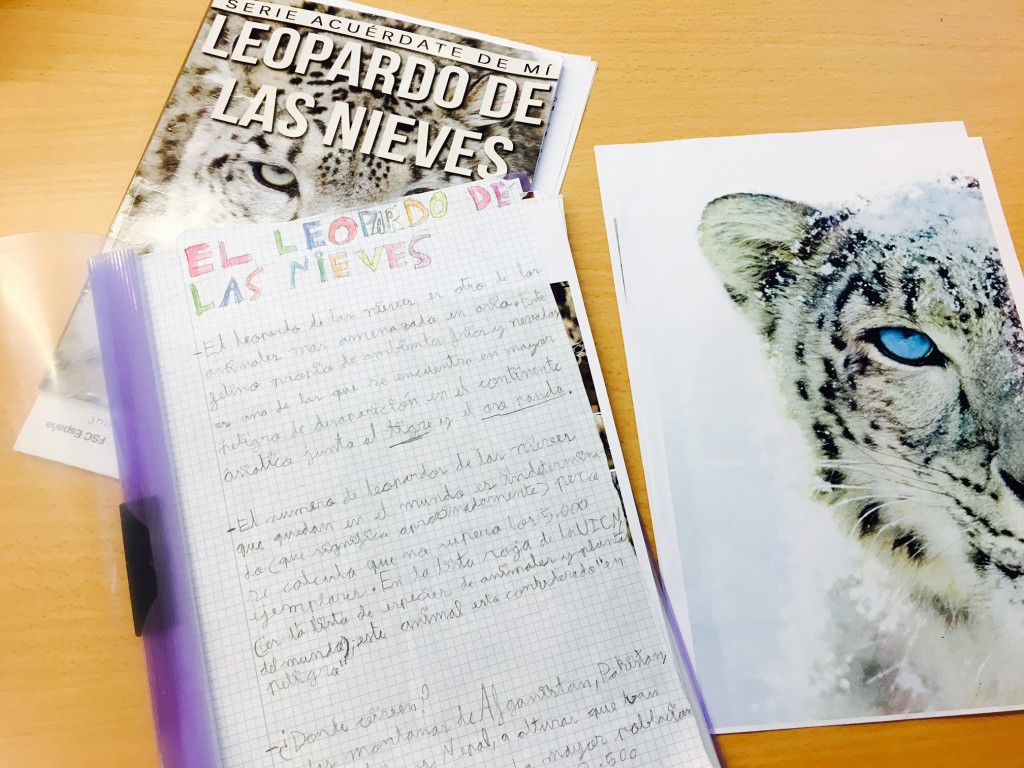 SERIE ACUÉRDATE DE MÍ
LEOPARDO DE
LAS NIEVES
EL LEOPARDO DE
LAS NIEVES
-El leopardo de las nieves es otro de los
animales mas amenazado en asia. Este
felino propio de ambientes frios y nevados
es uno de los que se encuentra en mayor
peligro de desaparicion en el continente
asiatico junto al tigre y el oso panda.
-El numero de leopardos de las nieves
que quedan en el mundo es indetermina-
do (que significa aproximadamente) pero
se calcula que no supera los 5.000
ejemplares. En la lista roja de la UICN
(es la lista de especies de animales y plantas
del mundo), este animal esta considerado "en
peligro"
-¿Donde viven?
montañas de Afganistan, Pakistan
y Nepal, a alturas que van
la mayor poblacion
.500
FSC España